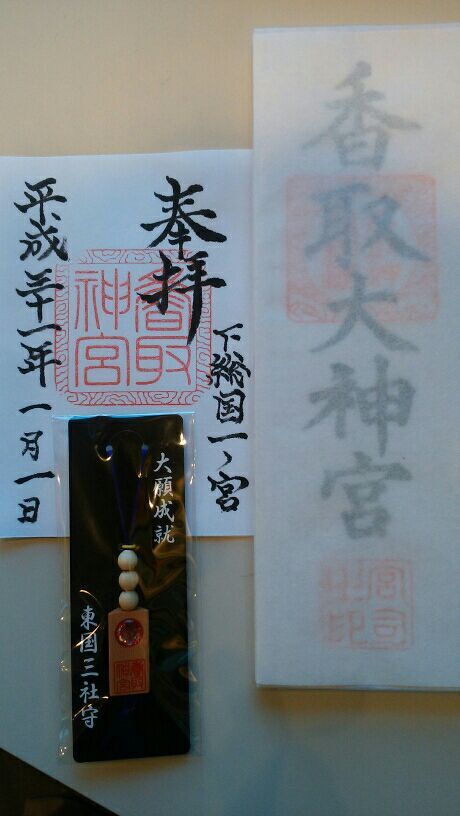 香取大神宮
宮司
下総国一ノ宮
奉拝
香取
神宮
平成三十一年一月一日
大願成就
東国三社守